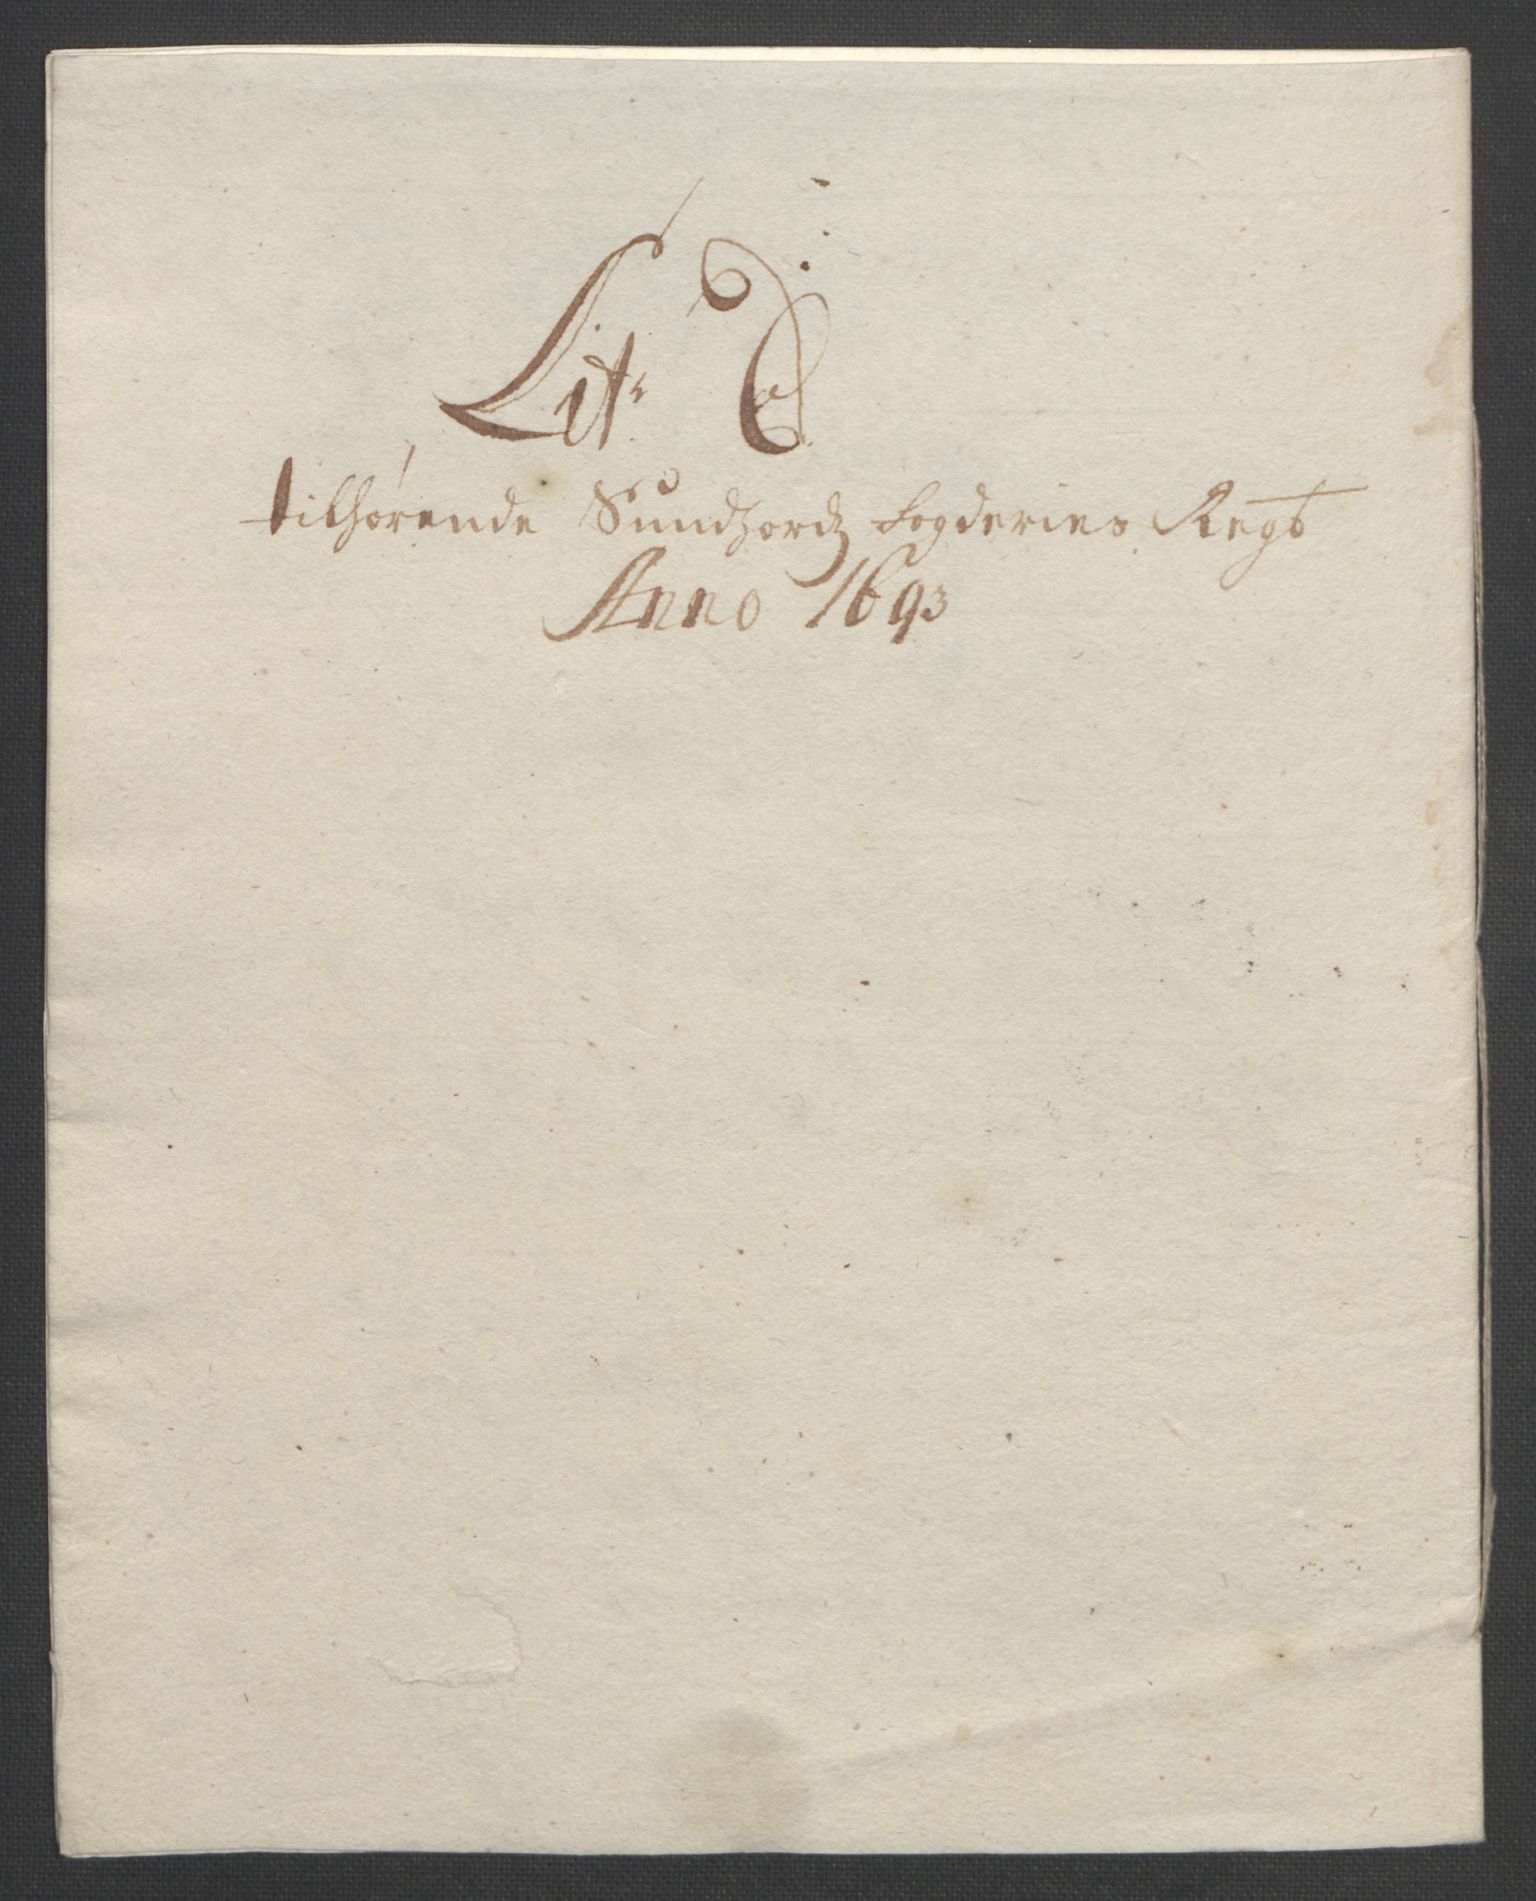 Lit.
tilhørende Sundfiords Fogderies Regb
Anno 1693